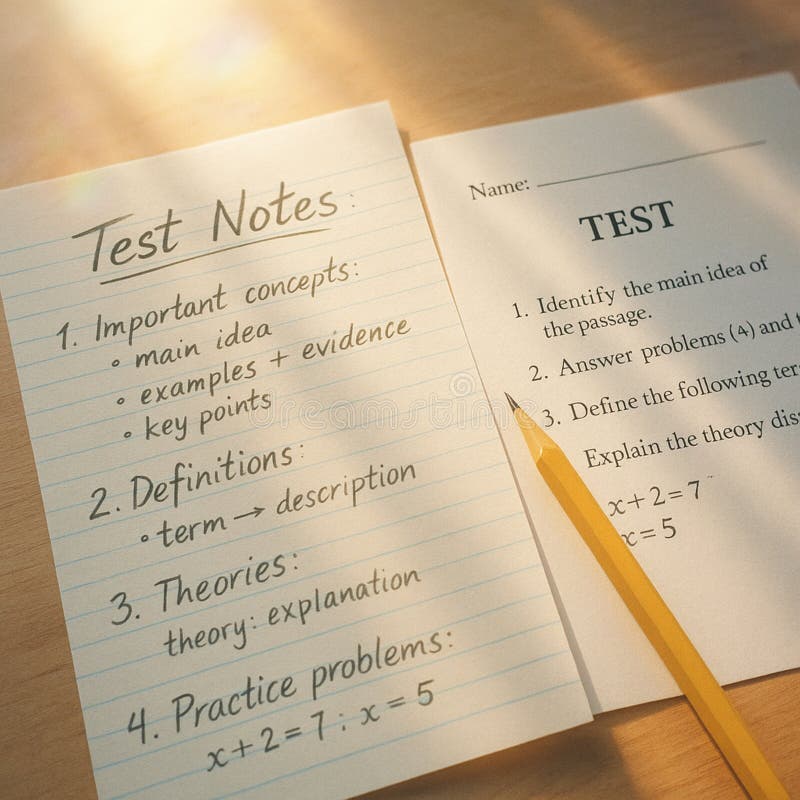 Test Notes:
1. Important concepts:
• main idea
• examples + evidence
• key points
2. Definitions:
• term → description
3. Theories:
theory: explanation
4. Practice problems:
x + 2 = 7 : x = 5
Name:
TEST
1. Identify the main idea of
the passage.
2. Answer problems (4) and
3. Define the following
Explain the theory
x + 2 = 7
x = 5
dreamstime